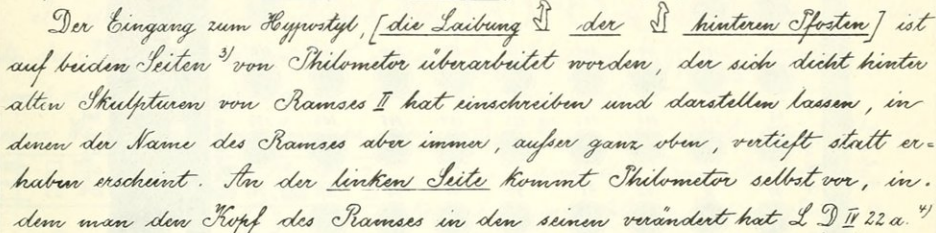 Der Eingang zum Hypostyl, [die Laibung der hinteren Pfosten] ist
auf beiden Seiten 3) von Philometor überarbeitet worden, der sich dicht hinter
alten Skulpturen von Ramses II hat einschreiben und darstellen lassen, in
denen der Name des Ramses aber immer, außer ganz oben, vertieft statt er=
haben erscheint. An der linken Seite kommt Philometor selbst vor, in=
dem man den Kopf des Ramses in den seinen verändert hat L D IV 22 a. 4)